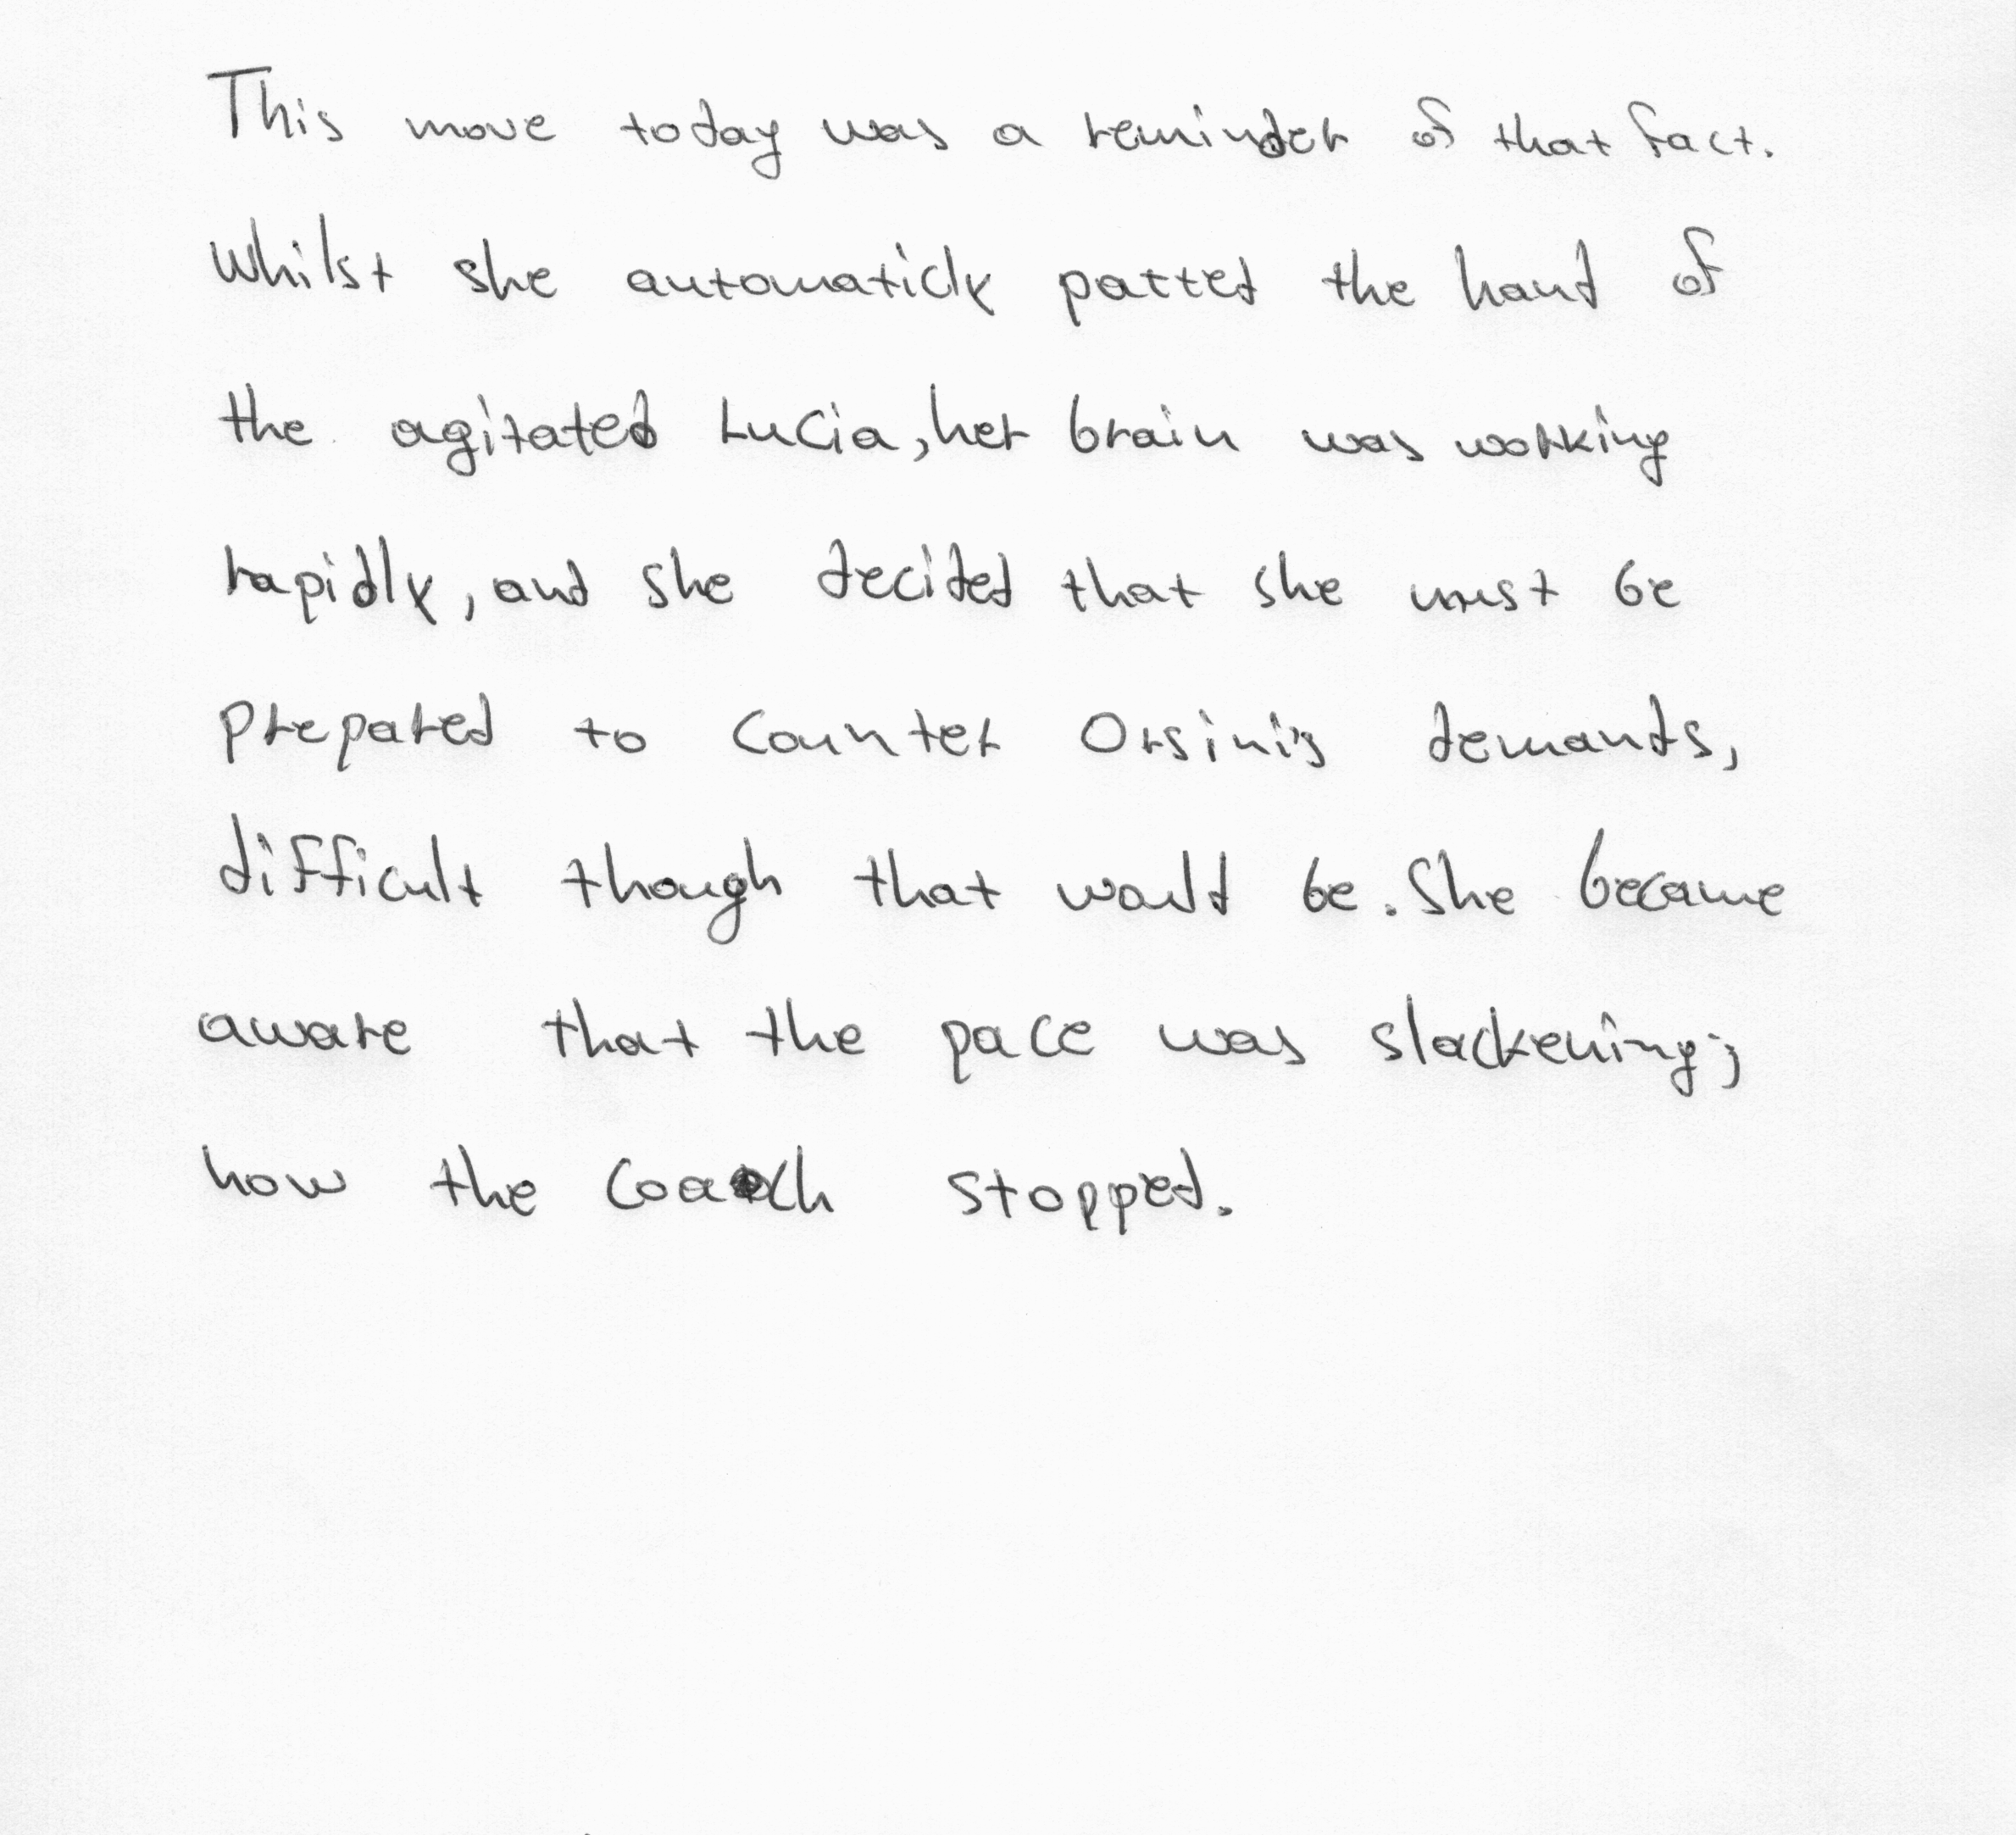 This move today was a reminder of that fact.
Whilst she automaticly patted the hand of
the agitated Lucia, her brain was working
rapidly, and she decided that she must be
prepared to counter Orsini's demands,
difficult though that would be. She became
aware that the pace was slackening;
how the coach stopped.